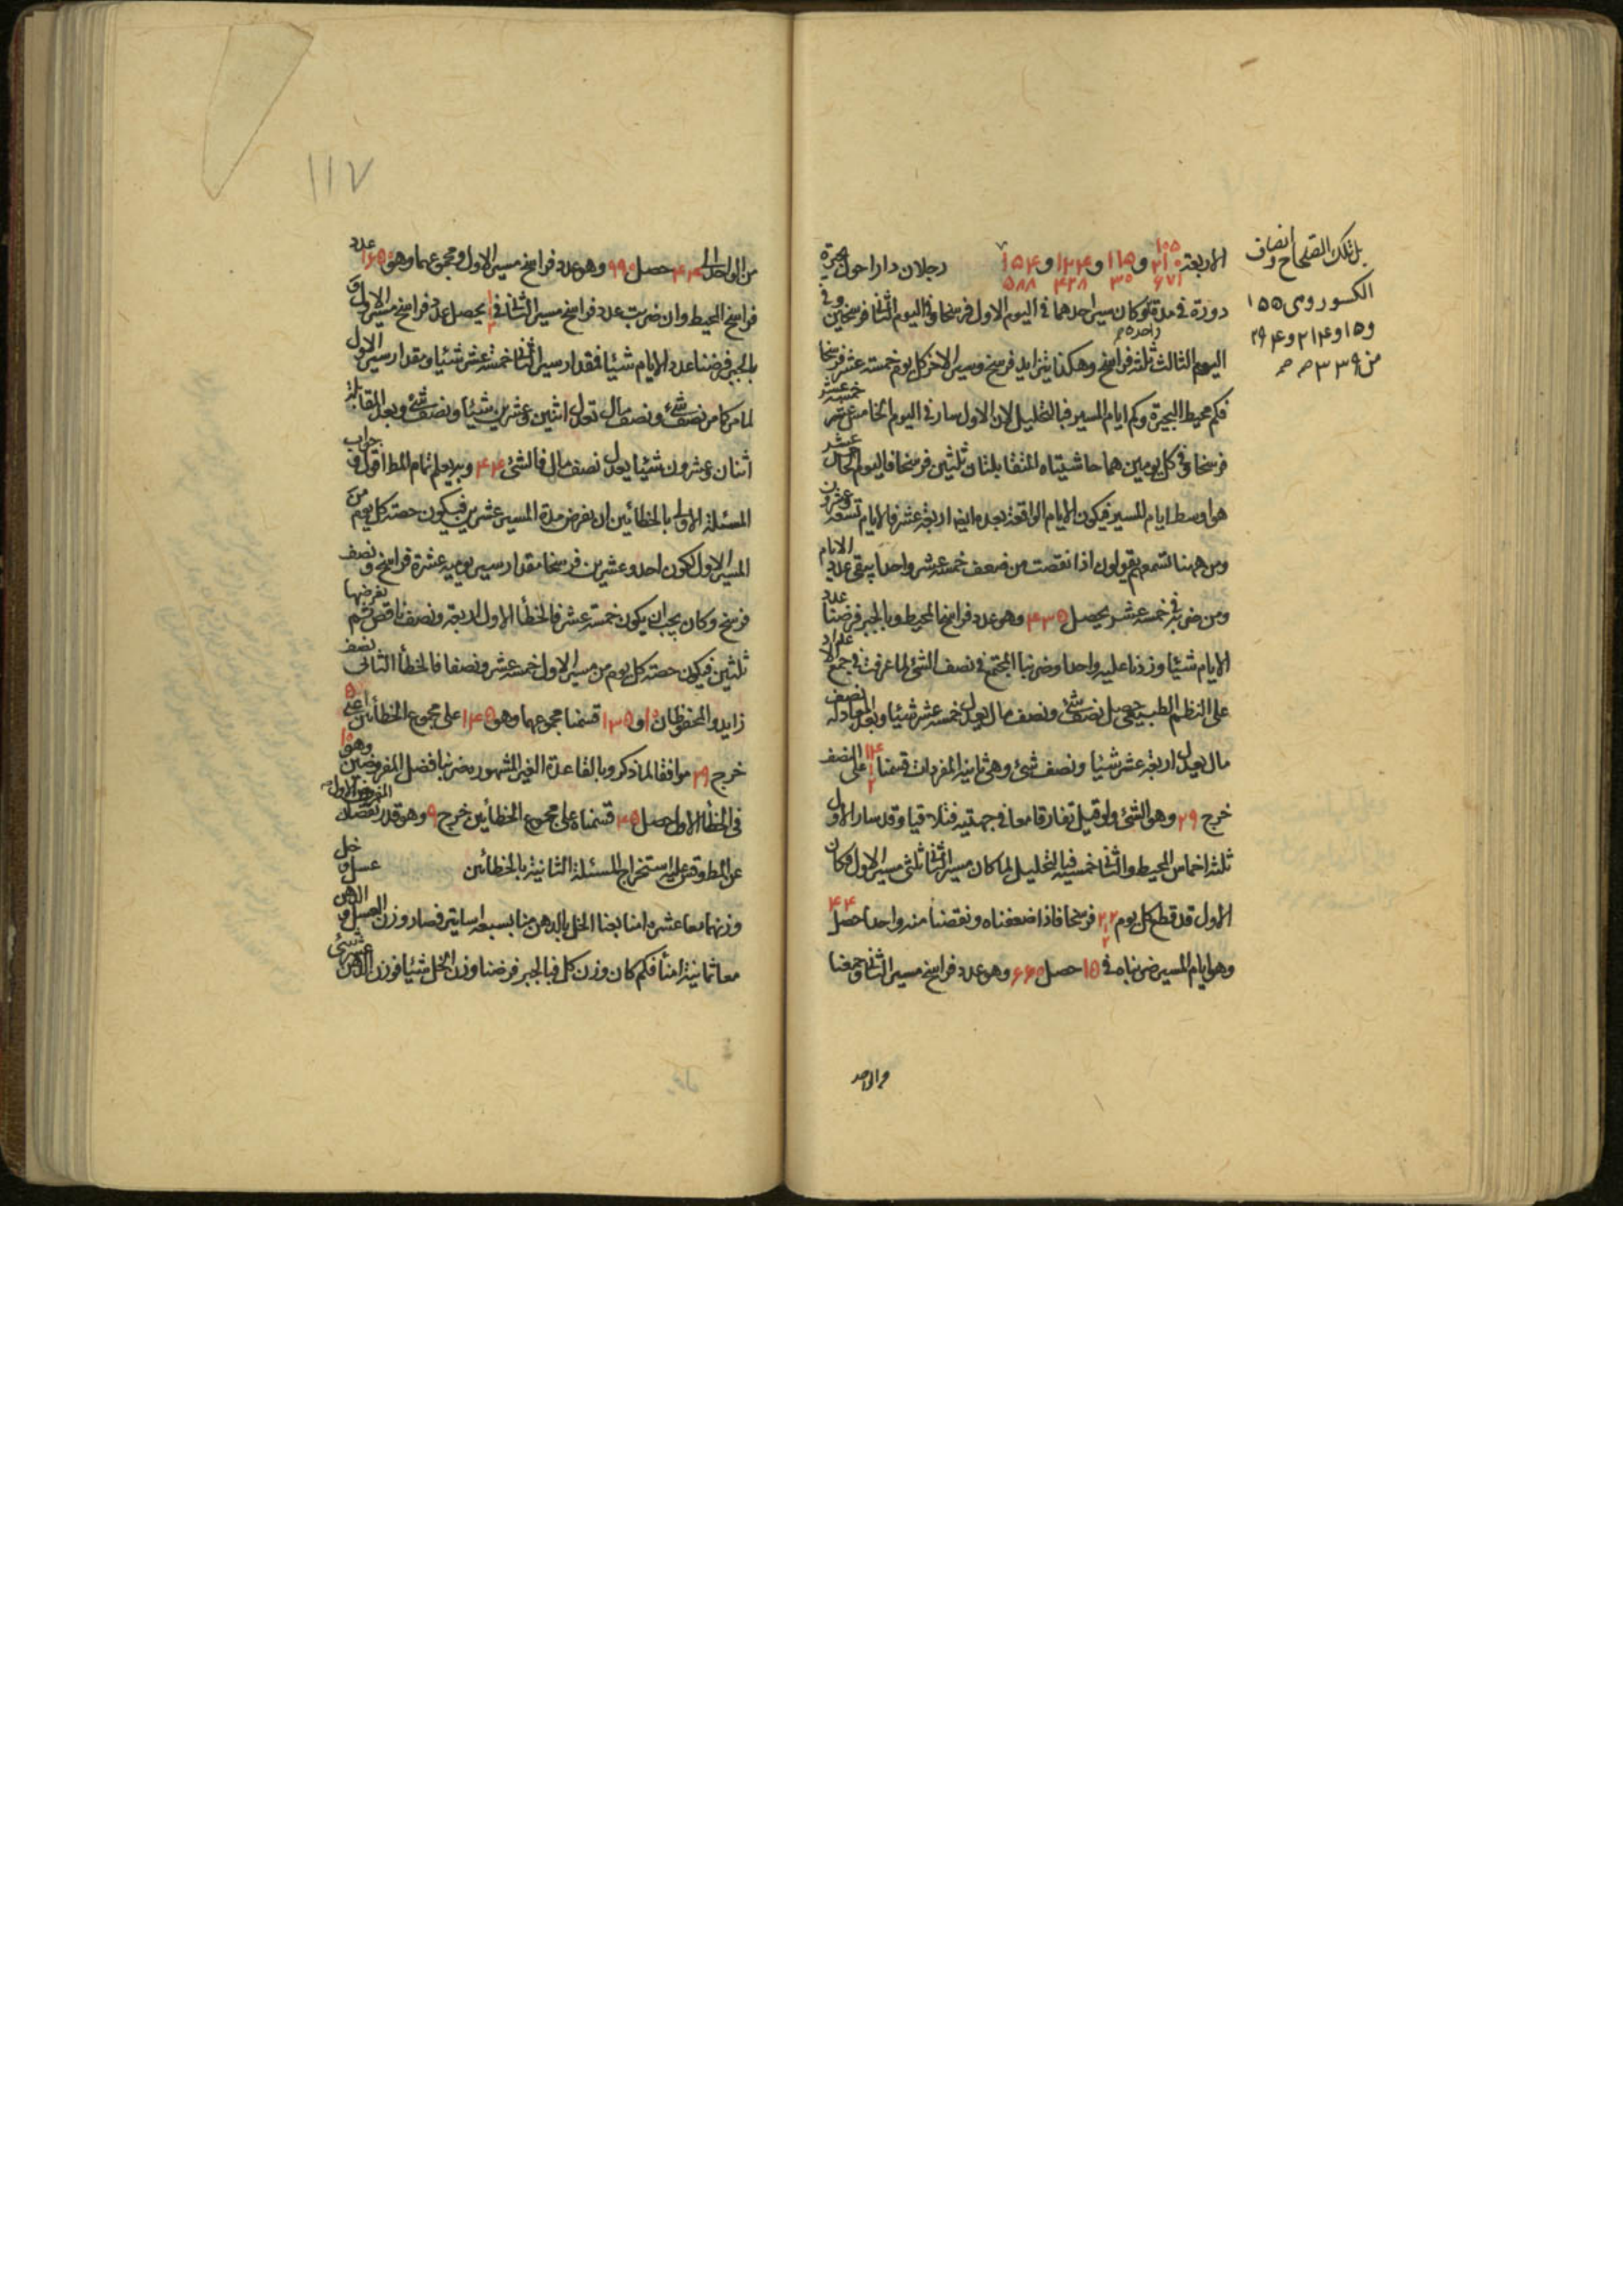 الاربعة ٢١٠ و ١١٥ و ١٢٤ و ١٥٤ رجلان دارا حول بحيرة
١٠٥
٦٧١ ٣٠ ٤٢٨ ٥٨٨
دورة في مدة وكان سير احدهما في اليوم الاول فرسخا وفي اليوم الثاني فرسخين وفي
اليوم الثالث ثلثة فراسخ وهكذا يتزايد فرسخ وسير الاخر كل يوم خمسة عشر فرسخا
واحدة
فكم محيط البحيرة وكم ايام المسير فبالتحليل لان الاول سار في اليوم الخامس عشر خمسة عشر
فرسخا وفي كل يومين هما حاشيتاه المتقابلتان ثلثين فرسخا فاليوم الخامس عشر
هو اوسط ايام المسير فيكون الايام الواقعة بعده ايضا اربعة عشر فالايام تسعة وعشرون
ومن ههنا تسمعهم يقولون اذا نقصت من ضعف خمسة عشر واحدا يبقى عدد الايام
ومن ضربه في خمسة عشر يحصل ٤٣٥ وهو عدد فراسخ المحيط وبالجبر فرضنا عدد
الايام شيئا وزدنا عليه واحدا وضربنا المجتمع في نصف الشئ لما عرفت في جمع الاعداد
على النظم الطبيعي حصل نصف شئ ونصف مال يعدل خمسة عشر شيئا وبعد المعادلة نصف
مال يعدل اربعة عشر شيئا ونصف شئ وهي ثانية المفردات قسمنا ١٤ ١ ٢ على النصف
خرج ٢٩ وهو الشئ ولو قيل تفارقا معا في جهتيه فتلاقيا وقد سار الاول
ثلثة اخماس المحيط والثاني خمسيه فبالتحليل لما كان مسير الثاني ثلثي مسير الاول فكان
الاول قد قطع كل يوم ٢٢ ١ ٢ فرسخا فاذا ضعفناه ونقصنا منه واحدا حصل ٤٤
وهو ايام المسير ضربناه في ١٥ حصل ٦٦٠ وهو عدد فراسخ مسير الثاني وجمعنا
من الواحد
بل تلك الصحاح وانصاف
الكسور وهي ١٥٥
و ١٥ و ٢١٤ و ٢٩٤
من ٣٣٩
١١٧
من الواحد الى ٤٤ حصل ٩٩٠ وهو عدد فراسخ مسير الاول ومجموعهما وهو ١٦٥٠ عدد
فراسخ المحيط وان ضربت عدد فراسخ مسير الثاني في ١ ١ ٢ يحصل عدد فراسخ مسير الاول و
بالجبر فرضنا عدد الايام شيئا فمقدار سير الثاني خمسة عشر شيئا ومقدار سير الاول
لما مر كا من نصف شئ ونصف مال تعدل اثنين وعشرين شيئا ونصف شئ وبعد المقابلة
اثنان وعشرون شيئا يعدل نصف مال فالشئ ٤٤ وبه يعلم تمام المط اقول وجواب
المسئلة الاولى بالخطأين ان نفرض مدة المسير عشرين فيكون حصة كل يوم من
المسير الاول لكون احد وعشرين فرسخا مقدار سير يوميه عشرة فراسخ ونصف
فرسخ وكان يجب ان يكون خمسة عشر فالخطأ الاول اربعة ونصف ناقص ثم نفرضها
ثلثين فيكون حصة كل يوم من مسير الاول خمسة عشر ونصفا فالخطأ الثاني نصف
زايد والمحفوظان ١٠ و ١٣٥ قسمنا مجموعهما وهو ١٤٥ على مجموع الخطأين اعني ٥
خرج ٢٩ موافقا لما ذكر وبالقاعدة الغير المشهورة ضربنا فضل المفروضين وهو ١٠
في الخطأ الاول حصل ٤٥ قسمناه على مجموع الخطأين خرج ٩ وهو قدر نقصان المفروض الاول
عن المط وقس عليه استخراج المسئلة الثانية بالخطأين خل وعسل
وزنهما معا عشرة امنا بعنا الخل بالدهن منا بسبعة اساتير فصار وزن العسل والدهن
معا ثمانية امنأ فكم كان وزن كل فبالجبر فرضنا وزن الخل شيئا فوزن الدهن